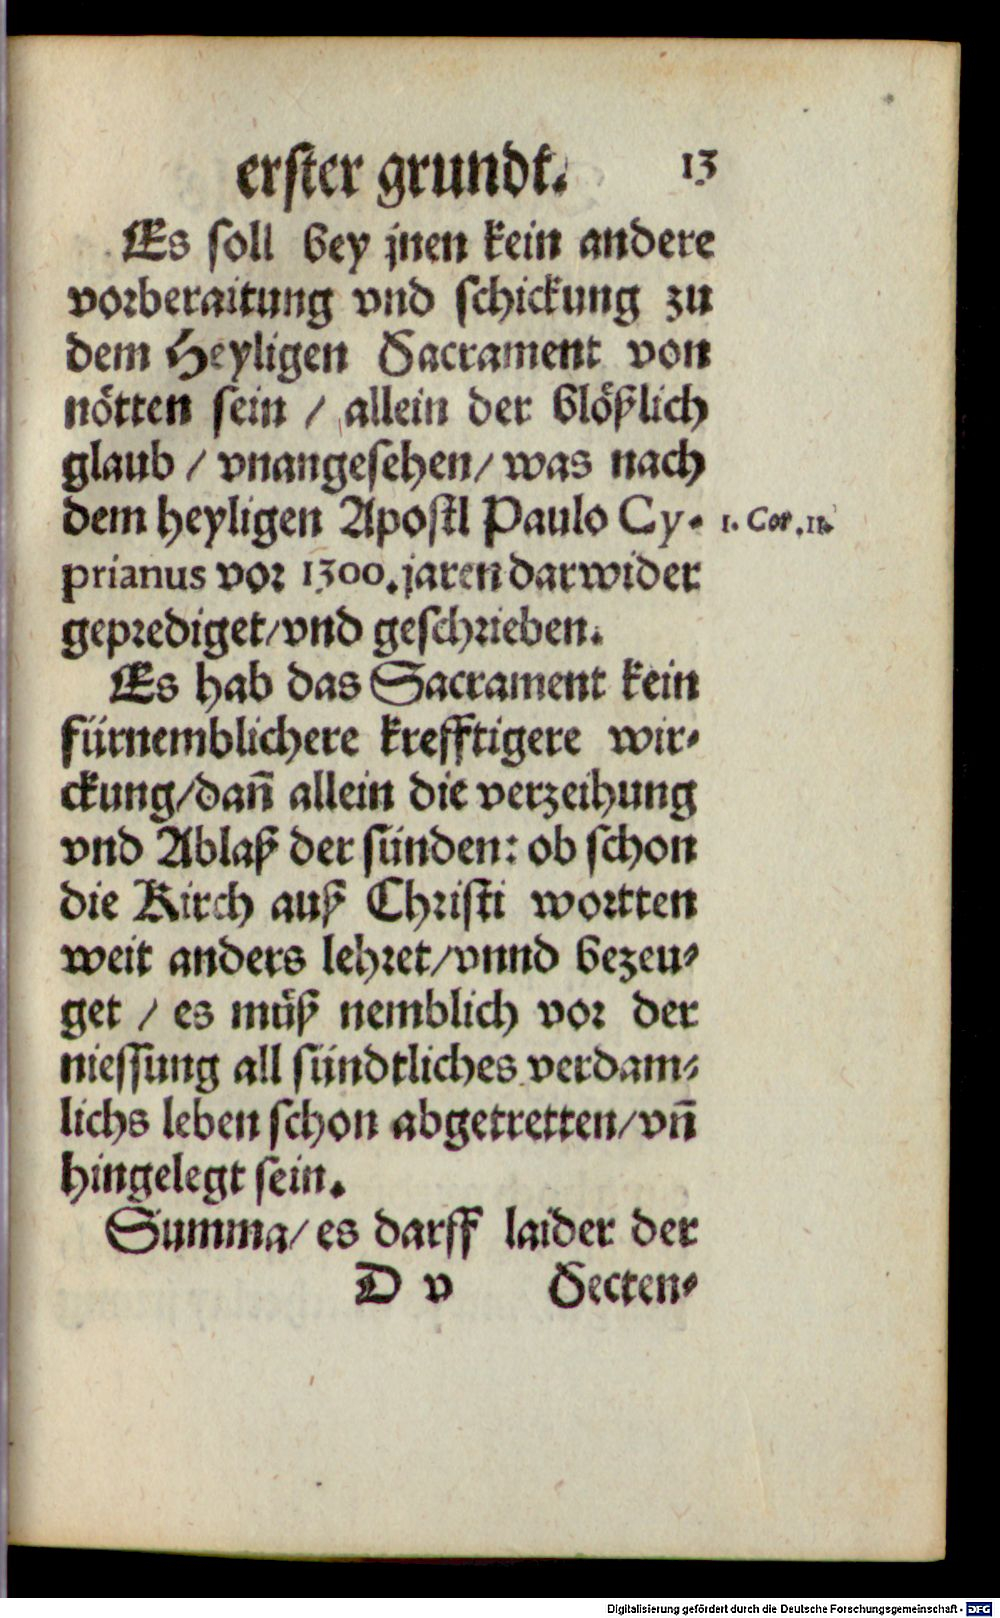 erster grundt. 13
Es soll bey jnen kein andere
vorberaitung vnd schickung zu
dem Heyligen Sacrament von
nötten sein / allein der blößlich
glaub / vnangesehen / was nach
dem heyligen Apostl Paulo Cy- 1. Cor. 11.
prianus vor 1300. jaren darwider
geprediget/vnd geschrieben.
Es hab das Sacrament kein
fürnemblichere krefftigere wir-
ckung/dañ allein die verzeihung
vnd Ablaß der sünden: ob schon
die Kirch auß Christi wortten
weit anders lehret/vnnd bezeu-
get / es müß nemblich vor der
niessung all sündtliches verdam-
lichs leben schon abgetretten/vñ
hingelegt sein.
Summa/ es darff laider der
D v Secten-
Digitalisierung gefördert durch die Deutsche Forschungsgemeinschaft - DFG